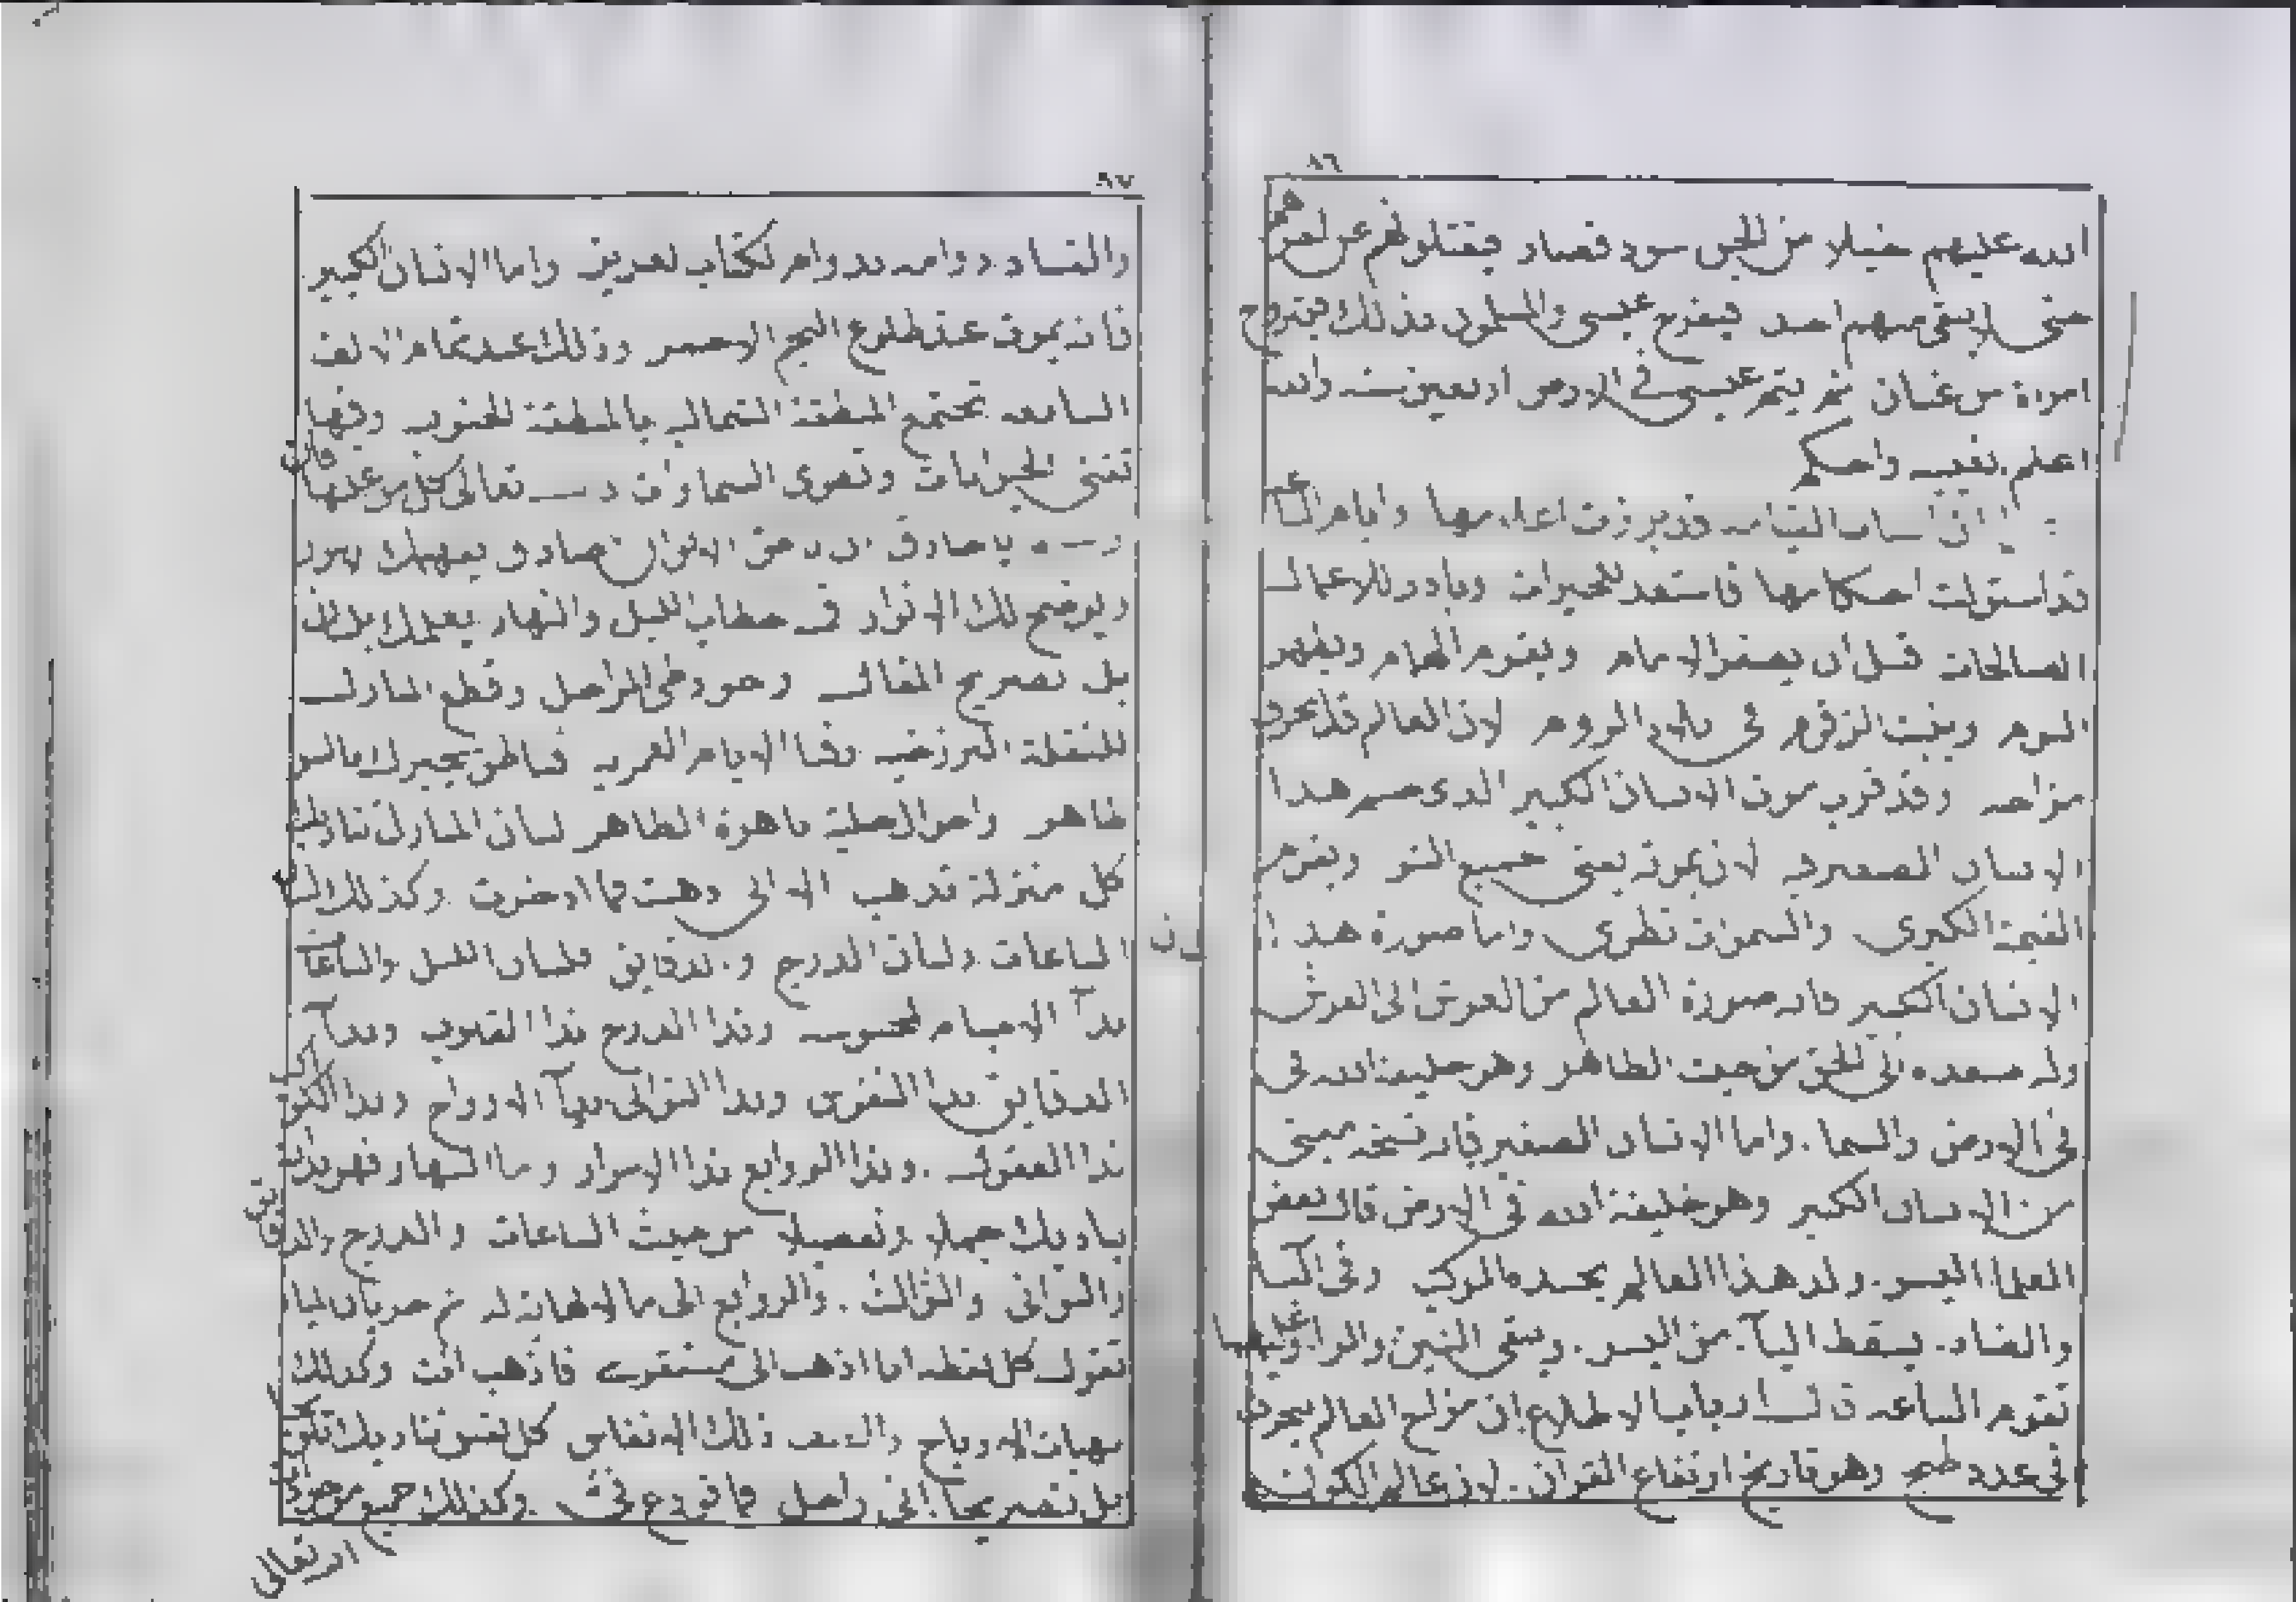 ٨٦
الله عليهم خيلا من الجن سود فصاد فيقتلونهم عن اخرهم
حتى لا يبقى منهم احد فيفرح عيسى والمسلمون بذلك فيتزوج
امراة من غسان ثم يتم عيسى في الارض اربعين سنة والله
اعلم بغيبه واحكم
الساب القيامه قد برزت اعلامها وايام
قد استولت احكامها فاستعد للخيرات وبادر للاعمال
الصالحات قبل ان يصفر الامام ويقوم الهام ويظهر
البوم وينبت الزقوم في بلاد الروم لان العالم قد انحرف
مزاجه وقد قرب موت الانسان الكبير الذي ضمير هذا
الانسان الصغير فيه لان بموته يفنى جميع النشو ويقوم
القيمة الكبرى والسموات تطوى واما صورة هذا
الانسان الكبير فانه صورة العالم من العرش الى الفرش
وله صعده الى الحق من حيث الظاهر وهو خليفة الله في
في الارض والسما. واما الانسان الصغير فانه نسخة
من الانسان الكبير وهو خليفة الله في الارض قال بعض
العلما اليسو. ولد هذا العالم بحده المركب وفي
والضاد. يسقط اليآ. من اليسو. ويبقى السين والواو وعليها
تقوم الساعه قال ارباب الاطلاع ان مزاج العالم ينحرف
في عدد طبج وهو تاريخ ارتفاع القران. لان عالم الكون
٨٧
والفساد دوامه بدوام الكتاب العزيز واما الانسان الكبير
فانه يموت عند طلوع النجم الاحمر وذلك عند تمام الالف
السابعه تجتمع المنطقة الشماليه بالمنطقة الجنوب وفيها
تفنى الحيوانات وتطوى السماوات قال تعالى كل من عليها فان
يا صادق ان الاخوان صادق
ويوضح لك الانوار في خطاب الليل والنهار يعلمك بلسان
بل تصريح المقال وهو طي المراحل وقطع المنازل
للنقلة البرزخيه وفنا الايام العمريه فناطق يخبرك بالسو
ظاهر واحوال جلية باهرة الظاهر لسان المنازل تناديك
كل منزلة تذهب الا اني ذهبت فما ادخرت وكذلك لسان
الساعات ولسان الدرج والدقايق فلسان الليل والساعات
ندآ الاجسام المحسوسه وندا الدرج ندا القلوب وندآ
الدقايق ندا النفوس وندا الثواني ندآ الارواح وندا الثوالث
ندا العقول. وندا الروابع ندا الاسرار واما النهار فهو
يناديك جملا وتفصيلا من حيث الساعات والدرج والدقايق
والثواني والثوالث. والروابع الى ما لا نهاية له
تقول كل لحظة اما اذهب الى مستقري فاذهب انت وكذلك
مهبات الارياح ذلك الانفاس كل نفس يناديك
بل تصريحا اني راحل فما تودع فيّ. وكذلك جميع
الله تعالى